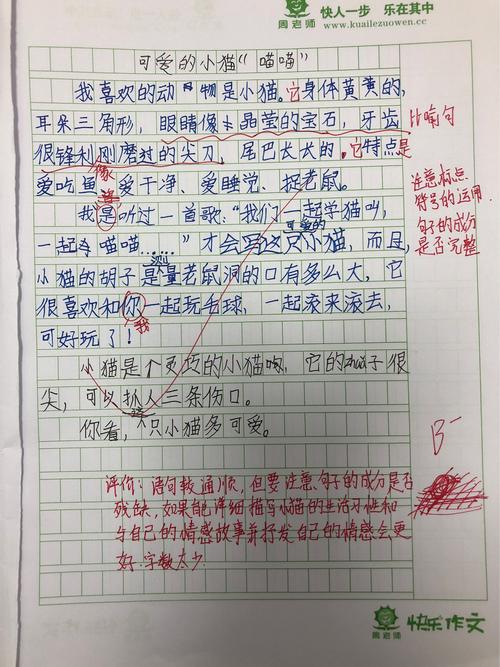 周老师
快人一步 乐在其中
www.kuailezuowen.cc
可爱的小猫“喵喵”
我喜欢的动物是小猫。它身体黄黄的,
耳朵三角形,眼睛像水晶莹的宝石,牙齿
比喻句
很锋利刚磨过的尖刀,尾巴长长的.它特点是
像
爱吃鱼、爱干净、爱睡觉、捉老鼠。
注意标点
符号的运用
句子的成分
是否完整
我是听过一首歌:“我们一起学猫叫,
可爱的
一起 喵喵……”才会写这只小猫,而且,
测
小猫的胡子是量老鼠洞的口有多么大,它
很喜欢和你一起玩毛球,一起滚来滚去,
我
可好玩了!
小猫是个 的小猫 ,它的 子很
尖,可以抓人三条伤口。
你看, 只小猫多可爱。
B-
评价:语句较通顺,但要注意句子的成分是否
残缺,如果能详细描写小猫的生活习性和
与自己的情感故事并抒发自己的情感会更
好.字数太少.
周老师
快乐作文